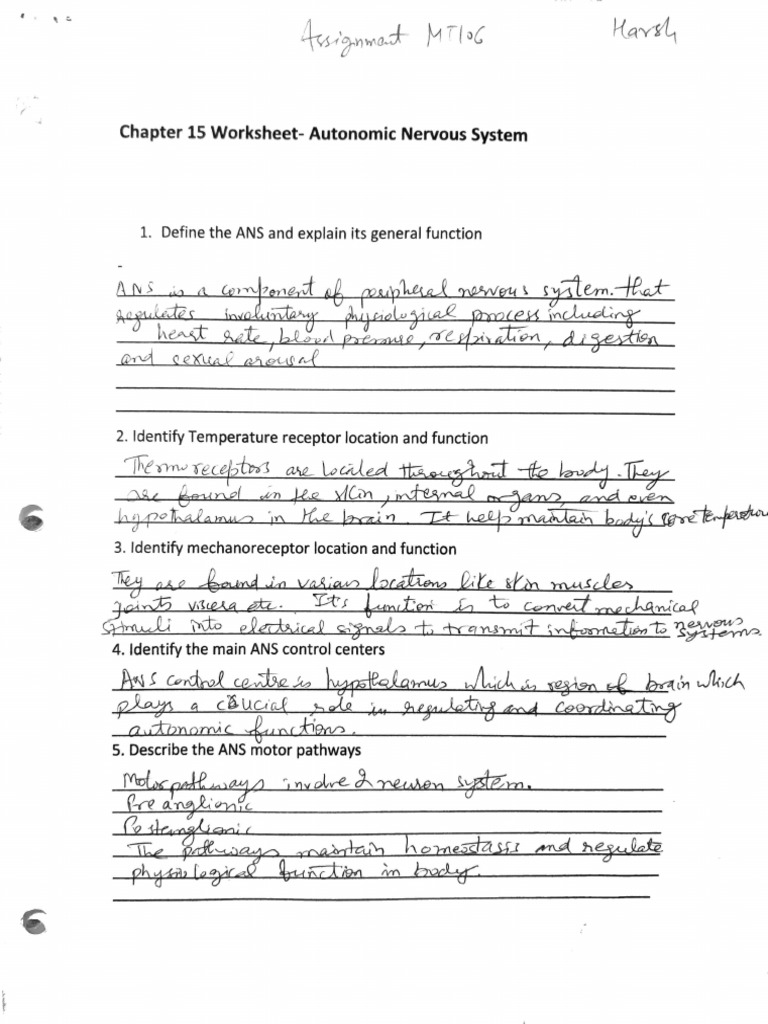 Assignment MT106 Harsh
Chapter 15 Worksheet- Autonomic Nervous System
1. Define the ANS and explain its general function
-
ANS is a component of peripheral nervous system. that
regulates involuntary physiological process including
heart rate, blood pressure, respiration, digestion
and sexual arousal
2. Identify Temperature receptor location and function
Thermoreceptors are located throughout the body. They
are found in the skin, internal organs, and even
hypothalamus in the brain. It help maintain body's core temperature
3. Identify mechanoreceptor location and function
They are found in various locations like skin muscles
joints viscera etc. It's function is to convert mechanical
stimuli into electrical signals to transmit information to nervous
systems.
4. Identify the main ANS control centers
ANS control centre is hypothalamus which is region of brain which
plays a crucial role in regulating and coordinating
autonomic functions.
5. Describe the ANS motor pathways
Motor pathways involve 2 neuron system.
Pre anglionic
Postanglionic
The pathways maintain homeostasis and regulate
physiological function in body.